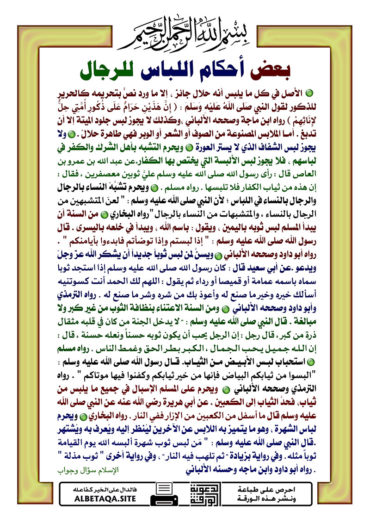 بسم الله الرحمن الرحيم
بعض أحكام اللباس للرجال
الأصل في كل ما يلبس أنه حلال جائز ، إلا ما ورد نصٌ بتحريمه كالحرير
للذكور لقول النبي صلى اللهُ عليه وسلم : ( إِنَّ هَذَيْنِ حَرَامٌ عَلَى ذُكُورِ أُمَّتِي حِلٌّ
لإِنَاثِهِمْ ) رواه ابن ماجة وصححه الألباني ،وكذلك لا يجوز لبس جلود الميتة إلا أن
تدبغ . أما الملابس المصنوعة من الصوف أو الشعر أو الوبر فهي طاهرة حلال . ولا
يجوز لبس الشفاف الذي لا يستر العورة ويحرم التشبه بأهل الشرك والكفر في
لباسهم . فلا يجوز لبس الألبسة التي يختص بها الكفار.عن عبد الله بن عمرو بن
العاص قال : رأى رسول الله صلى الله عليه وسلم عليَّ ثوبين معصفرين ، فقال :
إن هذه من ثياب الكفار فلا تلبسها . رواه مسلم . ويحرم تشبُه النساء بالرجال
والرجال بالنساء في اللباس ؛ لأن النبي صلى الله عليه وسلم : " لعن المتشبهين من
الرجال بالنساء ، والمتشبهات من النساء بالرجال "رواه البخاري من السنة أن
يبدأ المسلم لبس ثوبه باليمين . ويقول : باسم الله . ويبدأ في خلعه باليسرى . قال
رسول الله صلى الله عليه وسلم : " إذا لبستم وإذا توضأتم فابدءوا بأيامنكم " .
رواه أبو داود وصححه الألباني ويسن لمن لبس ثوباً جديداً أن يشكر الله عز وجلّ
ويدعو .عن أبي سعيد قال : كان رسول الله صلى الله عليه وسلم إذا استجد ثوباً
سماه باسمه عمامة أو قميصاً أو رداء ثم يقول : اللهم لك الحمد أنت كسوتنيه
أسألك خيره وخير ما صنع له وأعوذ بك من شره وشر ما صنع له . رواه الترمذي
وأبو داود وصححه الألباني ومن السنة الاعتناء بنظافة الثوب من غير كبر ولا
مبالغة . قال النبي صلى الله عليه وسلم : "لا يدخل الجنة من كان في قلبه مثقال
ذرة من كبر، قال رجل : إن الرجل يحب أن يكون ثوبه حسناً ونعله حسنة ، قال :
إن الله جميل يحب الجمال ، الكبر بطر الحق وغمط الناس . رواه مسلم
استحباب لبس الأبيض من الثياب. قال رسول الله صلى الله عليه وسلم :
"البسوا من ثيابكم البياض فإنها من خير ثيابكم وكفنوا فيها موتاكم " . رواه
الترمذي وصححه الألباني ويحرم على المسلم الإسبال في جميع ما يلبس من
ثياب. فحد الثياب إلى الكعبين . عن أبي هريرة رضي الله عنه عن النبي صلى الله
عليه وسلم قال ما أسفل من الكعبين من الإزار ففي النار . رواه البخاري ويحرم
لباس الشهرة ، وهو ما يتميز به اللابس عن الآخرين لينظر إليه ويُعرف به ويشتهر
.قال النبي صلى الله عليه وسلم : " من لبس ثوب شهرة ألبسه الله يوم القيامة
ثوباً مثله . وفي رواية بزيادة- ثم تلهب فيه النار- . وفي رواية أخرى " ثوب مذلة "
. رواه أبو داود وابن ماجه وحسنه الألباني
الإسلام سؤال وجواب
احرص على طباعة
ونشر هذه الورقة
دعوية
الورقة
فالدال على الخير كفاعله
ALBETAQA.SITE